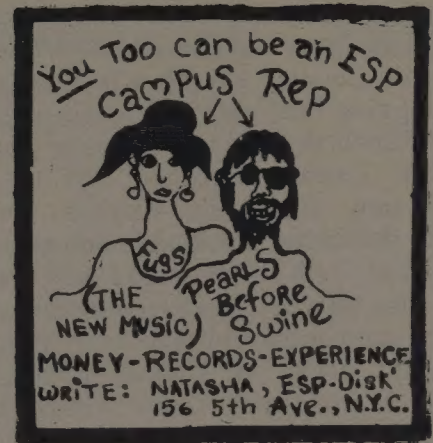 You Too can be an ESP
Campus Rep
Fugs
(THE
NEW MUSIC)
Pearls
Before
Swine
MONEY-RECORDS-EXPERIENCE
WRITE: NATASHA, ESP-Disk'
156 5th Ave., N.Y.C.